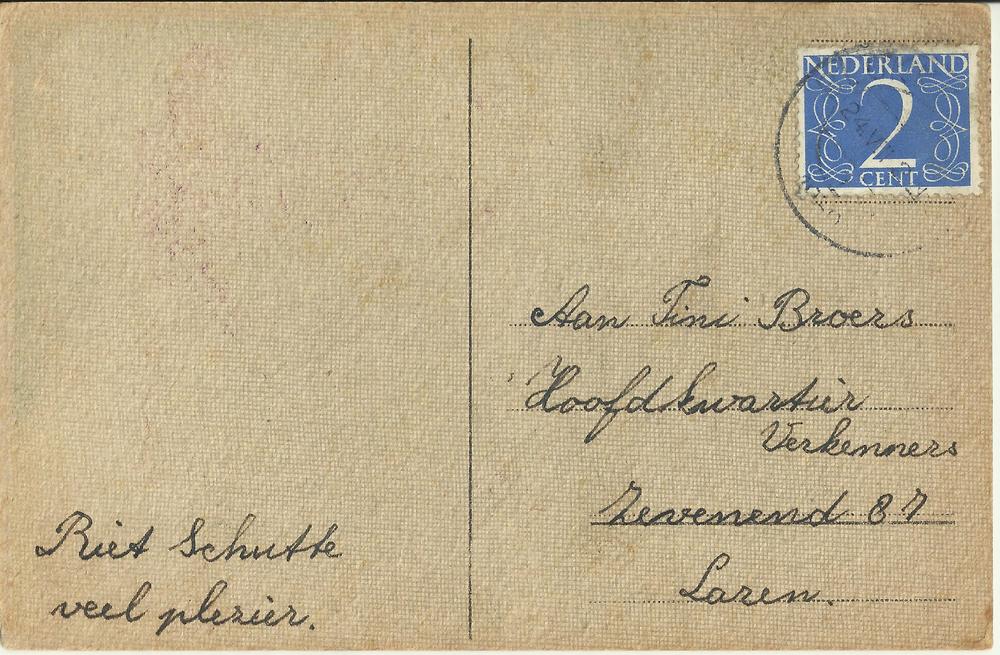 NEDERLAND
2
CENT
24.VII
Aan Tini Broers
Hoofdkwartier
Verkenners
Zevenend 87
Laren.
Riet Schutte
veel plezier.